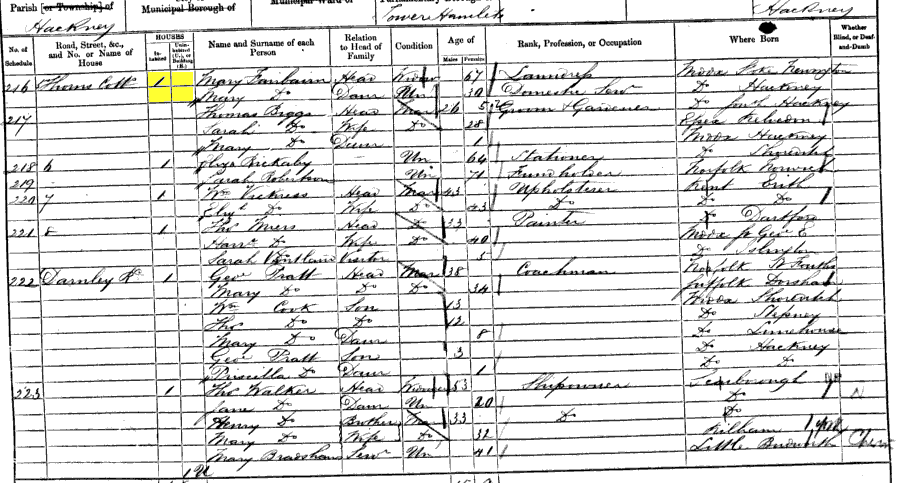 Parish [or Township] of
Municipal Borough of
Municipal Ward of
Hackney
Tower Hamlets
Hackney
No. of Schedule
Road, Street, &c., and No. or Name of House
HOUSES
Inhabited
Uninhabited (U.), or Building (B.)
Name and Surname of each Person
Relation to Head of Family
Condition
Age of
Males
Females
Rank, Profession, or Occupation
Where Born
Whether Blind, or Deaf-and-Dumb
216 Thorns Cott 1 Mary Fairbairn Head Widow 67 Laundress Middx Stoke Newington
Mary Do Daur Un 30 Domestic Serv Do Hackney
217 Thomas Briggs Head Mar 26 Groom & Gardener Do Hackney
Sarah Do Wife Do 28 Essex Kelvedon
Mary Do Daur 1 Middx Hackney
218 6 1 Eliza Rickaby Un 64 Stationer Do Shoreditch
219 Sarah Robertson Un 71 Fundholder Norfolk Norwich
220 7 1 Wm Vickress Head Mar 43 Upholsterer Kent Erith
Elizth Do Wife Do 43 Do Do Do
221 8 1 Thos Miers Head Do 33 Painter Do Dartford
Harrt Do Wife Do 40 Middx St Geo E
Sarah Visitor 5 Do Islington
222 Darnley Rd 1 Geo Pratt Head Mar 38 Coachman Norfolk
Mary Do Do Do 34 Suffolk
Wm Cook Son 13 Middx Shoreditch
Thos Do Do 12 Do Stepney
Mary Do Daur 8 Do Limehouse
Geo Pratt Son 3 Do Hackney
Priscilla Do Daur 1 Do Do
223 1 Thos Walker Head Widower 53 Shipowner Scarborough
Jane Do Daur Un 20 Do
Henry Do Brother Mar 33 Do Do
Mary Do Wife Do 32 Kilham
Mary Bradshaw Serv Un 41 Little Budworth